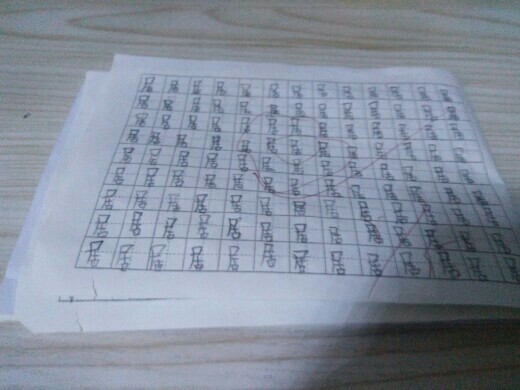 居居居居居居居居居居居居居
居居居居居居居居居居居居居
居居居居居居居居居居居居居
居居居居居居居居居居居居居
居居居居居居居居居居居居居
居居居居居居居居居居居居居
居居居居居居居居居居居居居
居居居居居居居居居居居居居
居居居居居居居居居居居居居